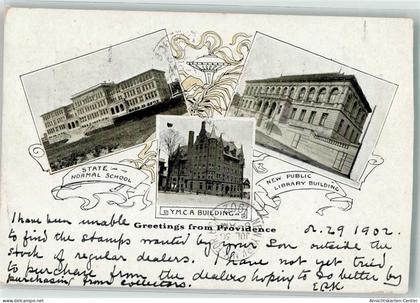 STATE
NORMAL SCHOOL
NEW PUBLIC
LIBRARY BUILDING
Y.M.C.A. BUILDING
Greetings from Providence
29 1902.
I have been unable
to find the stamps wanted by your Son outside the
stock of regular dealers. I have not yet tried
to purchase from the dealers hoping to do better by
purchasing from collectors.